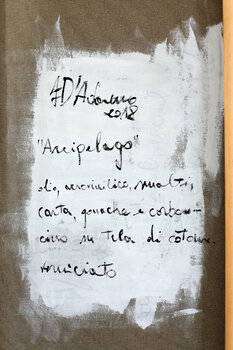 D'Adamo
2018
"Arcipelago"
olio, acrovinilico, smalti,
carta, gouache e carbon-
cino su tela di cotone.
verniciato